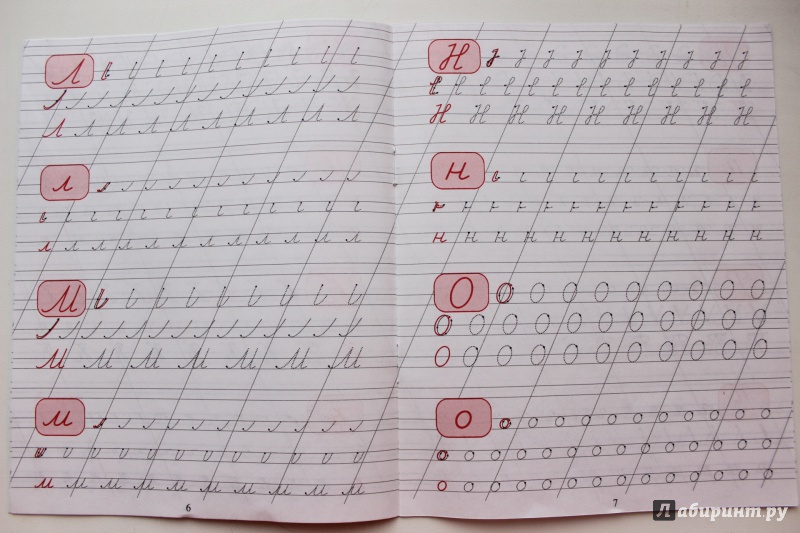 Л
Л Л Л Л Л Л Л Л Л Л
л
л л л л л л л л л л л л
М
М М М М М М М
м
м м м м м м м м м м
6
Н
Н Н Н Н Н Н Н Н Н
н
н н н н н н н н н н н
О О О О О О О О О О
О О О О О О О О О О О
О О О О О О О О О О О
о о о о о о о о о о о о
о о о о о о о о о о о о о о
о о о о о о о о о о о о о о
7
Лабиринт.ру